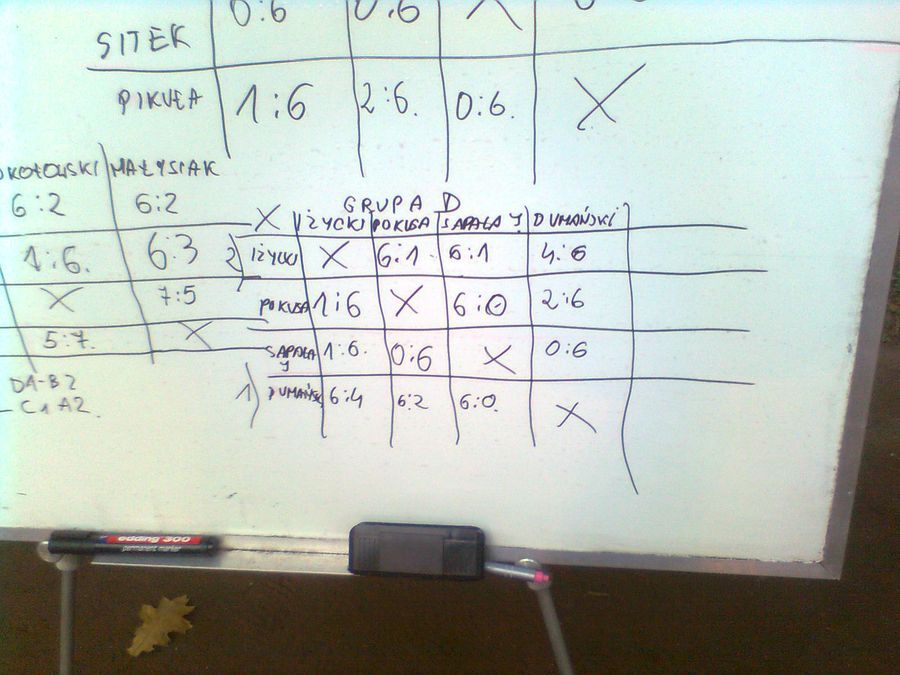 0:6 0:6 X
SITEK
PIKUŁA 1:6 2:6. 0:6. X
KOTOWSKI MAŁYSIAK
6:2 6:2
1:6. 6:3
X 7:5
5:7. X
DA-B2
C1A2.
GRUPA D
X IŻYCKI POKUSA SAPAŁA J. DUMAŃSKI
2) IŻYCKI X 6:1 6:1 4:6
POKUSA 1:6 X 6:0 2:6
SAPAŁA J 1:6. 0:6 X 0:6
1) DUMAŃSKI 6:4 6:2 6:0. X
edding 300
permanent marker